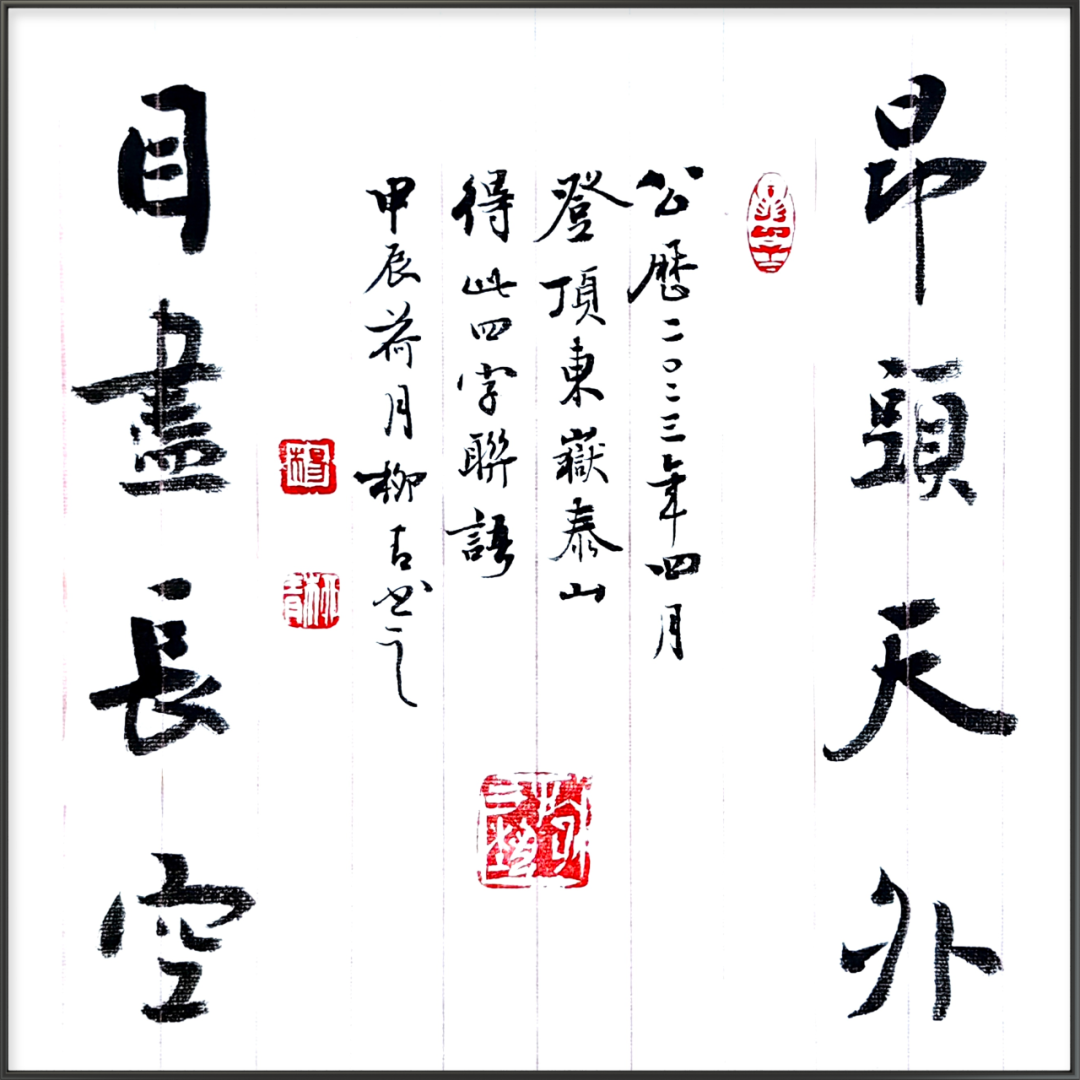 昂頭天外
公歷二〇二三年四月
登頂東嶽泰山
得此四字聯語
甲辰荷月柳古书之
目盡長空